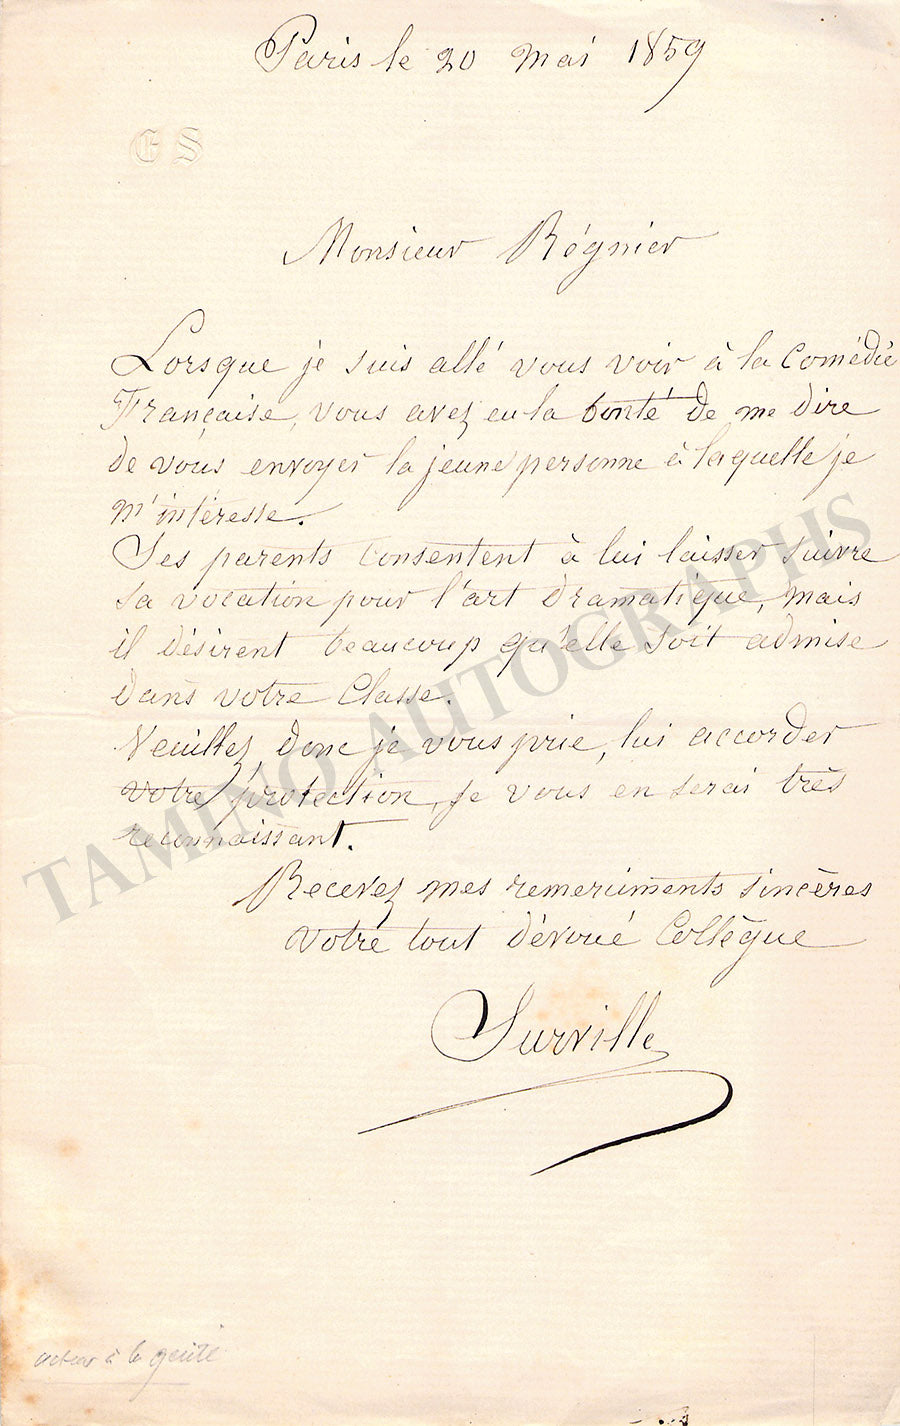 Paris le 20 Mai 1859
E S
Monsieur Régnier
Lorsque je suis allé vous voir à la Comédie
Française, vous avez eu la bonté de me dire
de vous envoyer la jeune personne à laquelle je
m'intéresse.
Ses parents consentent à lui laisser suivre
sa vocation pour l'art dramatique, mais
il désirent beaucoup qu'elle soit admise
dans votre Classe.
Veuillez, donc je vous prie, lui accorder
votre protection, je vous en serai très
reconnaissant.
Recevez mes remerciments sincères
Votre tout dévoué Collègue
Surville
acteur à la gaité
TAMINO AUTOGRAPHS